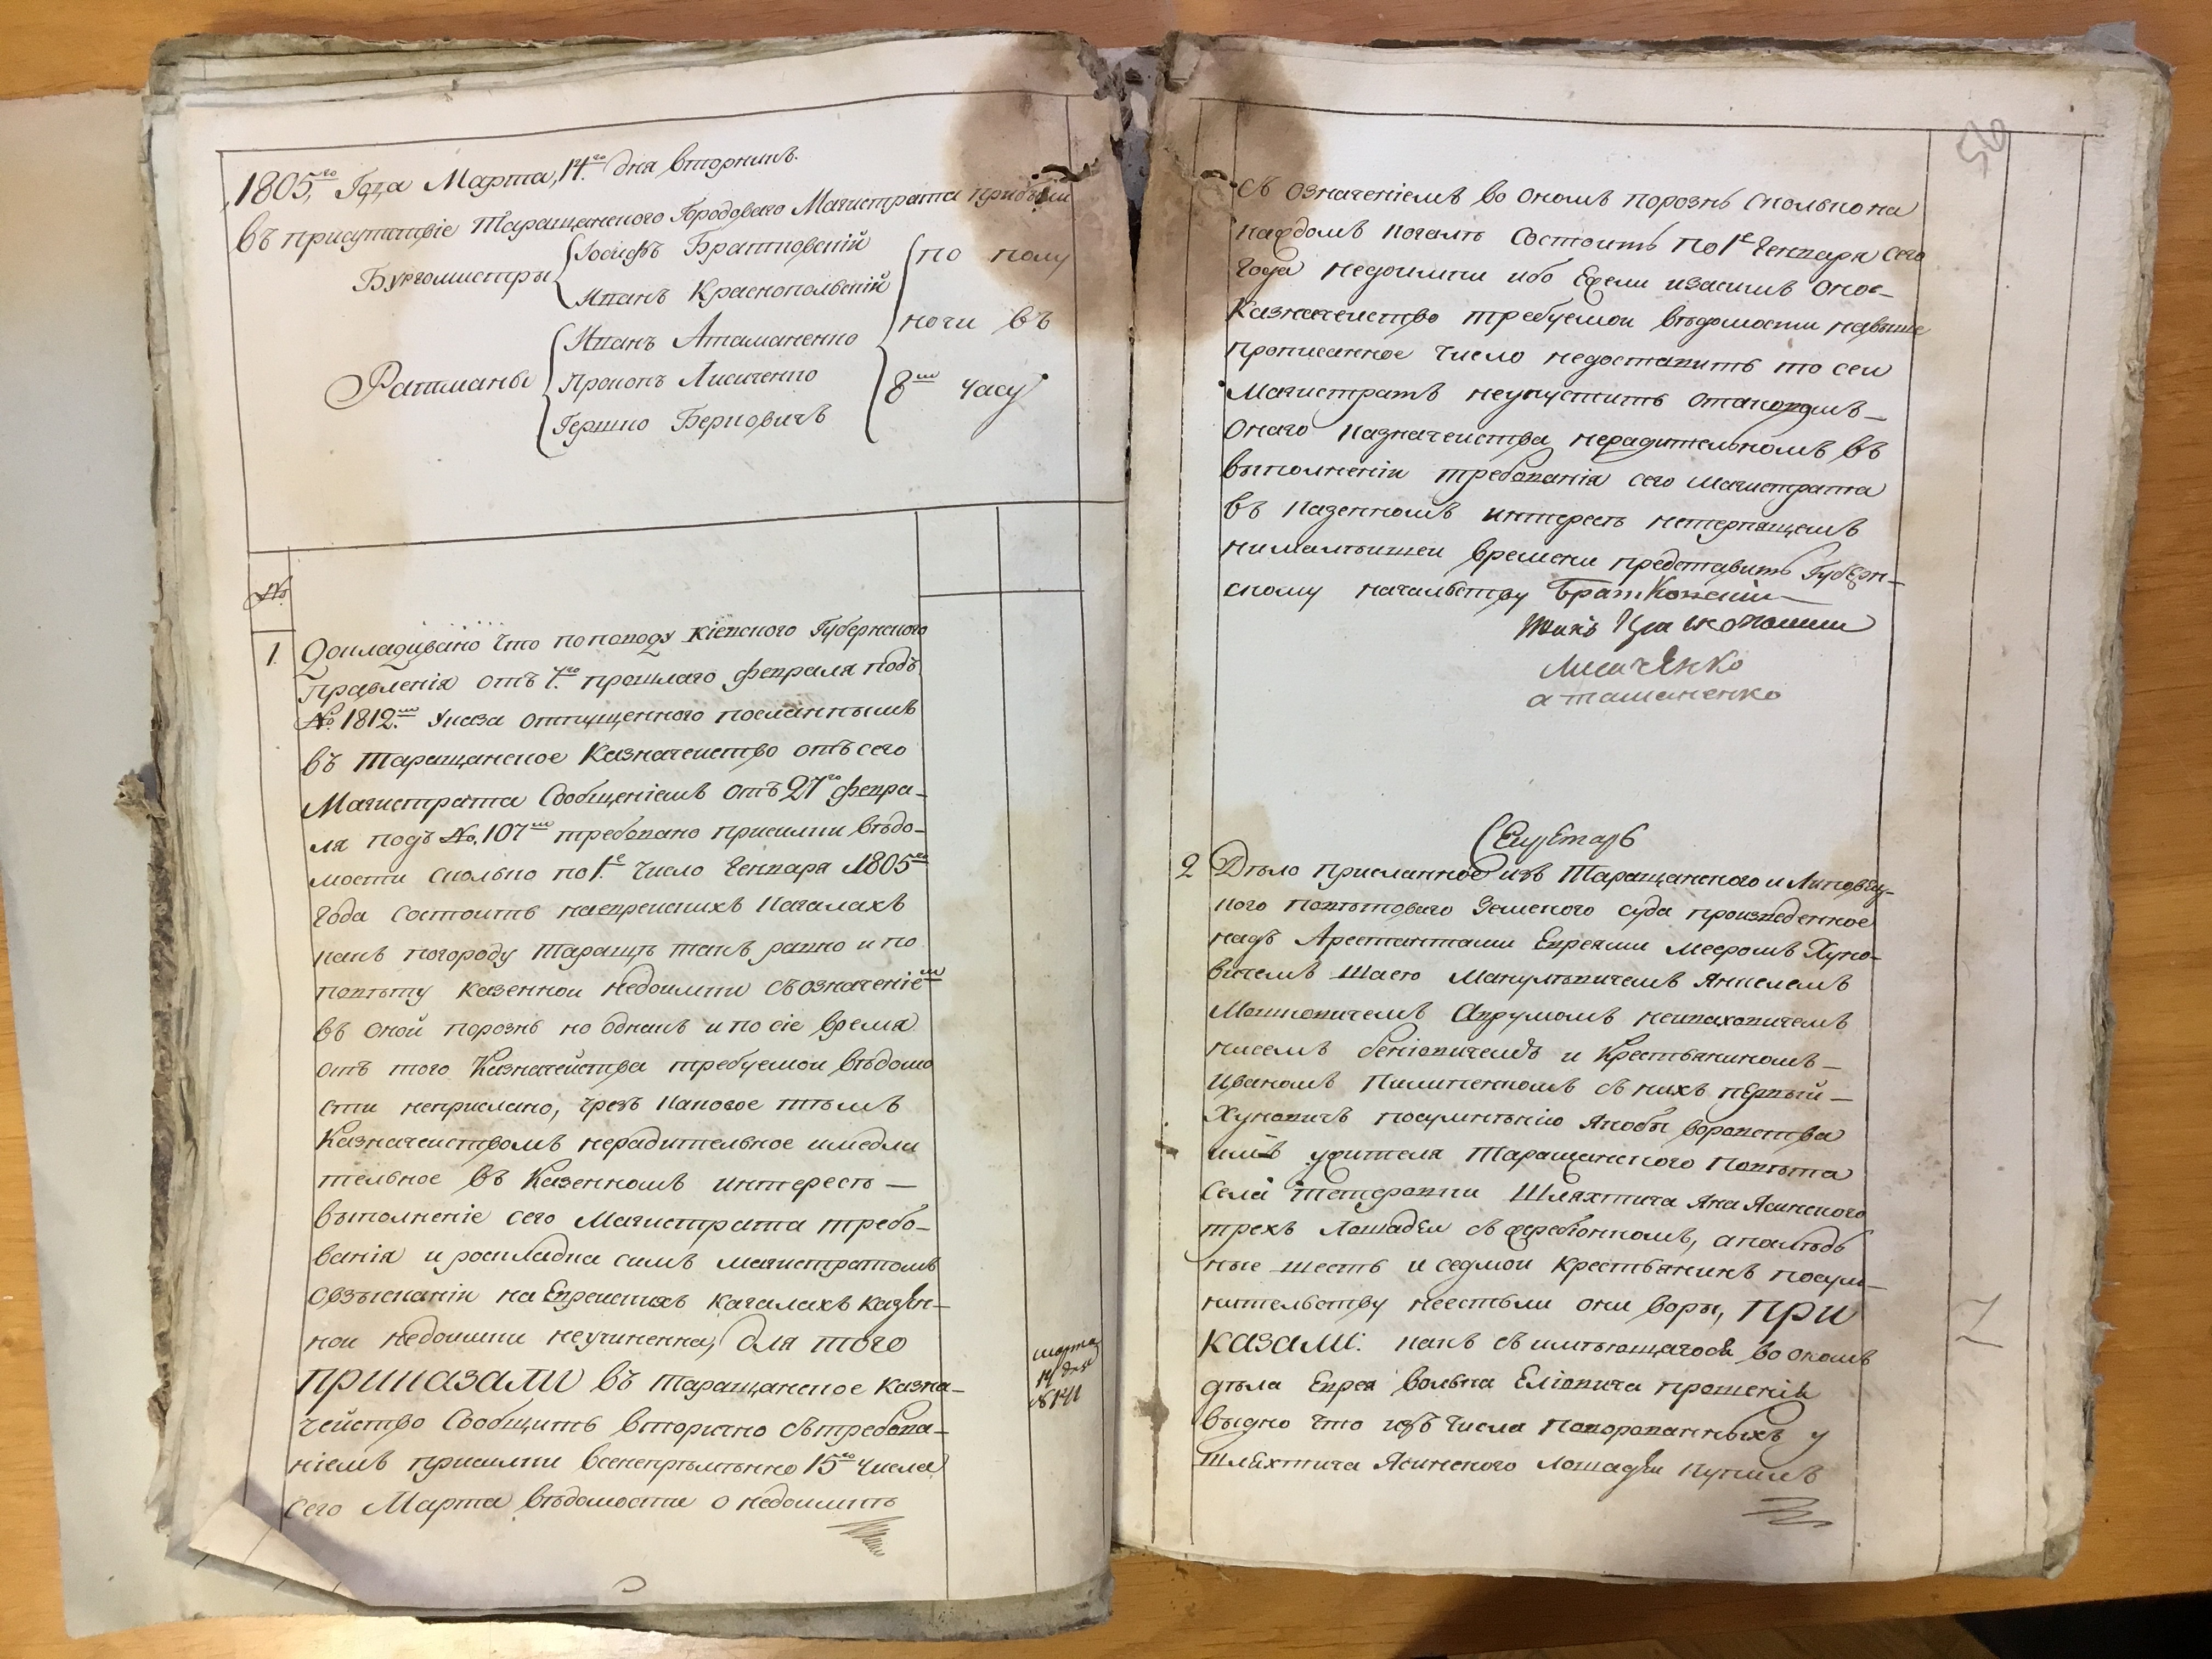 1805го Года Марта, 14го дня вторникъ.
въ присутствіе Таращанского Городоваго Магистрата прибыли
Бургомистры
Іосифъ Братковскій
Иванъ Краснопольскій
Ратманы
Иванъ Атаманенко
Прокопъ Лисиченко
Гершко Берковичъ
по полу
ночи въ
8м часу
№
1. Докладывано что поповоду кіевского Губернского
Правленія отъ 7го прошлаго февраля подъ
№ 1812м Указа отпущенного посланнымъ
въ Таращанское Казначеиство отъ сего
Магистрата Сообщеніемъ отъ 27го февра-
ля подъ №, 107м требовано присилки вѣдо-
мости сколько по 1е число Генваря 1805го
года состоитъ наевреискихъ кагалахъ
какъ погороду Таращѣ такъ равно и по
повѣту казеннои недоимки съозначеніем
въ оной порознь но однакъ и по сіе время
отъ того Казначейства требуемои вѣдомо
сти неприслано, чрезъ каковое тѣмъ
Казначеиствомъ нерадительное имедли
тельное въ Казенномъ интересѣ —
выполненіе сего Магистрата требо-
ванія и роскладка симъ магистратомъ
овзысканіи на Евреискихъ кагалахъ казен-
нои недоимки неучиненна, для того
приказали въ Таращанское казна-
чейство Сообщить вторично сътребова-
ніемъ присилки всенепрѣмѣнно 15го числа
сего Марта вѣдомости о недоимкѣ
марта
14 дня
№ 141
56
съ означеніемъ во ономъ порознь сколько на
каждомъ кагалѣ состоитъ по 1е Генваря сего
года недоимки ибо Ежели изасимъ оное-
Казначеиство требуемои вѣдомости навыше
прописанное число недоставитъ то сеи
Магистратъ неупуститъ отаковомъ-
онаго казначеиства нерадительномъ въ
выполненіи требованія сего Магистрата
въ казенномъ интересѣ нетерпящемъ
нималѣишеи времени представить Губерн-
скому начальству Братковскій
Иванъ Краснополский
Лисиченко
атаманенко
Секретарь
2 Дѣло присланное изъ Таращанского и Липовец-
кого повѣтоваго Земского суда произведенное
надъ Арестантами Евреями Мееромъ Хуно-
вичемъ Шаею Манулѣвичемъ Янкелемъ
Мошковичемъ Аврумомъ
и Крестьяниномъ-
Иваномъ Пилипенкомъ съ нихъ первый-
Хуновичъ посумнѣнію якобы воровства
имъ ужителя Таращанского Повѣта
села Тетеровки Шляхтича Яна Ясинского
трехъ Лошадеи съ жеребіонкомъ, апослѣд
ные шесть и седмои крестьянинъ посум-
нительству неестьли они воры, при
казали: какъ съ имѣющагося во ономъ
дѣла Еврея волька Еліовича прошенія
выдно что изъ числа поворованныхъ у
Шляхтича Ясинского лошадеи купилъ